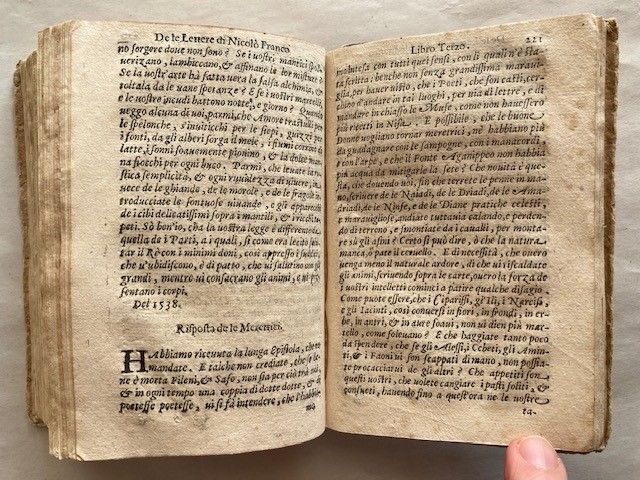 De le Lettere di Nicolò Franco
nò sorgere doue non sono? Se i uostri mantici
uerizano, lambiccano, & affinano le lor misture?
Se la uostr'arte hà fatto uera la falsa alchimia, &
tolta da le uane speranze? E se i uostri martelli,
e le uostre incudi battono notte, e giorno? Quando
ueggo alcuna di uoi, parmi, che Amore trastulli per
le spelonche, s'inuticchi per le siepi, guizzi per
i fonti, da gli alberi sorga il mele, i fiumi corrano di
latte, i sonni soauemente piouino, & la dolce man
na fiocchi per ogni buco. Parmi, che leuate la ru
stica semplicità, & ogni ruuidezza di uiuere, in
uece de le ghiande, de le morole, e de le fragole in
troducciate le sontuose uiuande, e gli apparecchi
de i cibi delicatissimi sopra i mantili, & i
peti. Sò ben'io, cha la uostra legge è differente da
quella de i Parti, a i quali, si come era lecito
tar il Rè con i minimi doni, così appresso i sudditi,
che u'ubidiscono, è di patto, che ui salutino coi più
grandi, mentre ui consacrano gli animi, e ui pre
sentano i corpi.
Del 1538.
Risposta de le Meretrici.
HAbbiamo riceuuta la lunga Epistola, che
mandate. E talche non crediate, che se le
ne è morta Fileni, & Safo, non sia per ciò trà noi,
& in ogni tempo una coppia di dotte dotte, e di
poetesse poetesse, ui si fà intendere, che l'habbia-
Libro Terzo. 221
con tutti quei sensi, con li quali n'è sta-
ta scritta; benche non senza grandissima maraui
glia, per hauer uisto, che i Poeti, che son casti, cer-
chino d'andare in tai luoghi, per uia di lettre, e di
mandare in chiasso le Muse, come non hauessero
più ricetti in Nisa. E possibile, che le buone
Donne uogliano tornar meretrici, nè habbiano più
da guadagnare con le sampogne, con i manacordi,
e con l'arpe, e che il Ponte Aganippeo non habbia
più acqua da mitigarle la sete? Che nouità è que-
sta, che douendo uoi, sin che terrete le penne in ma
no, scriuere de le Naiadi, de le Driadi, de le Ama-
driadi, de le Ninfe, e de le Diane pratiche celesti,
e marauigliose, andiate tuttauia calando, e perden-
do di terreno, e smontiate da i cauai, per monta-
re sù gli asini? Certo si può dire, ò che la natura
manca, ò pate il ceruello. E di necessità, che ouero
uenga meno il naturale ardore, di che ui iscaldate
gli animi, scriuendo sopra le carte, ouero la forza de
i uostri intelletti cominci a patire qualche disagio.
Come puote essere, che i Ciparissi, gi'Ili, i Narcisi,
e gli Iacinti, così conuersi in fiori, in frondi, in er-
be, in antri, & in aure soaui, non ui dien più mar-
tello, come soleuano? E che haggiate tanto poco
da spendere, che se gli Alessi, i Cheti, gli Amin-
ti, & i Fauni ui son scappati di mano, non possia-
te procacciarui de gli altri? Che appetiti son
questi uostri, che uolete cangiare i pasti soliti, &
consueti, hauendo fino a quest'ora ne le uostre
ta-